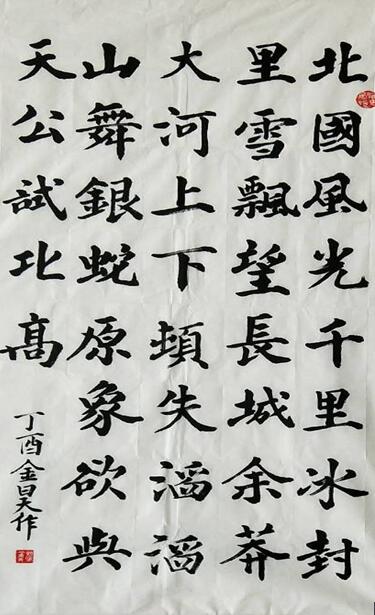 北國風光千里冰封
里雪飄望長城余莽
大河上下頓失滔滔
山舞銀蛇原象欲與
天公試比高
丁酉金昊作